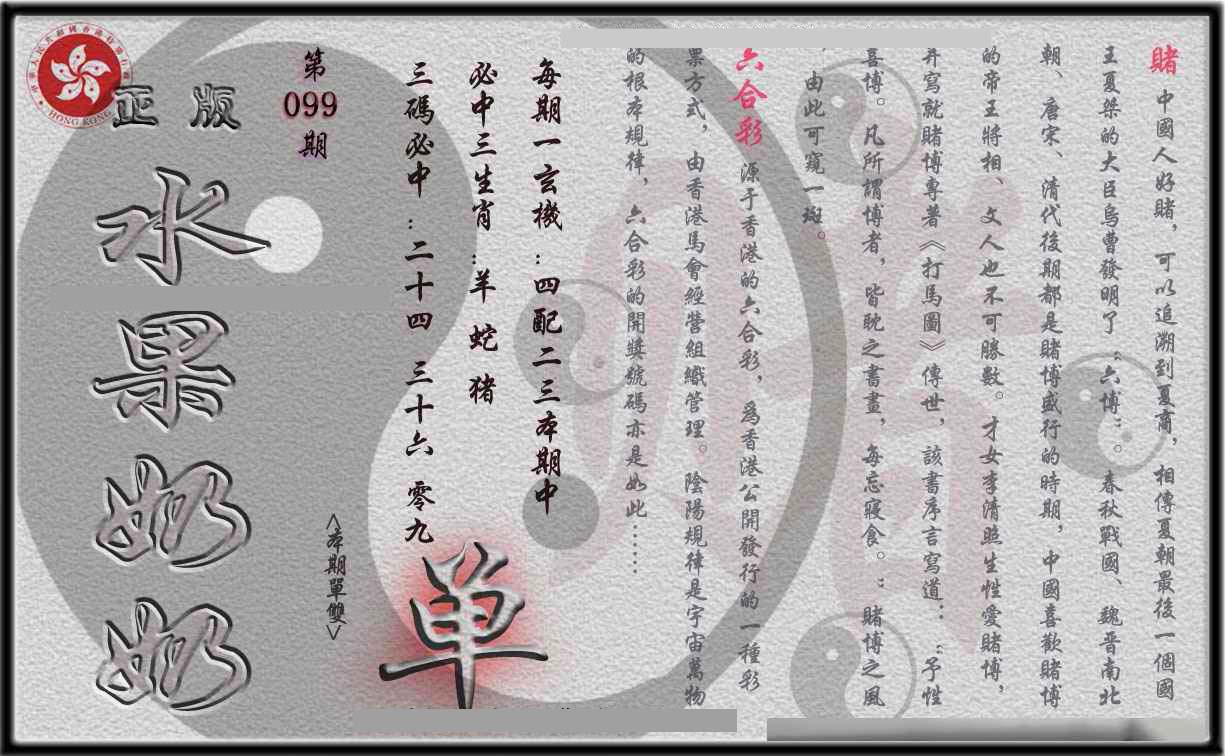 賭 中國人好賭，可以追溯到夏商，相傳夏朝最後一個國
王夏桀的大臣烏曹發明了“六博”。春秋戰國、魏晋南北
朝、唐宋、清代後期都是賭博盛行的時期，中國喜歡賭博
的帝王將相、文人也不可勝數。才女李清照生性愛賭博，
并寫就賭博專著《打馬圖》傳世，該書序言寫道：“予性
喜博。凡所謂博者，皆耽之晝畫，每忘寢食。”賭博之風
，由此可窺一斑。
六合彩 源于香港的六合彩，為香港公開發行的一種彩
票方式，由香港馬會經營組織管理。陰陽規律是宇宙萬物
的根本規律，六合彩的開獎號碼亦是如此……
每期一玄機：四配二三本期中
必中三生肖：羊 蛇 猪
三碼必中：二十四 三十六 零九
单
<本期單雙>
第
099
期
正版
水果奶奶
HONG KONG